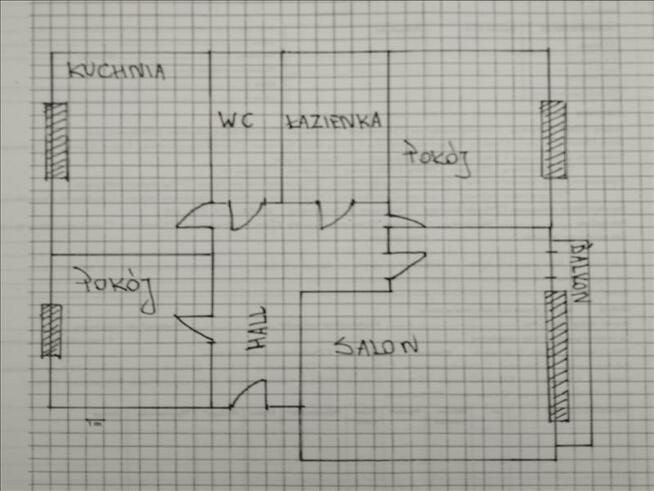 KUCHNIA
WC
ŁAZIENKA
Pokój
Pokój
HALL
SALON
BALKON
1m